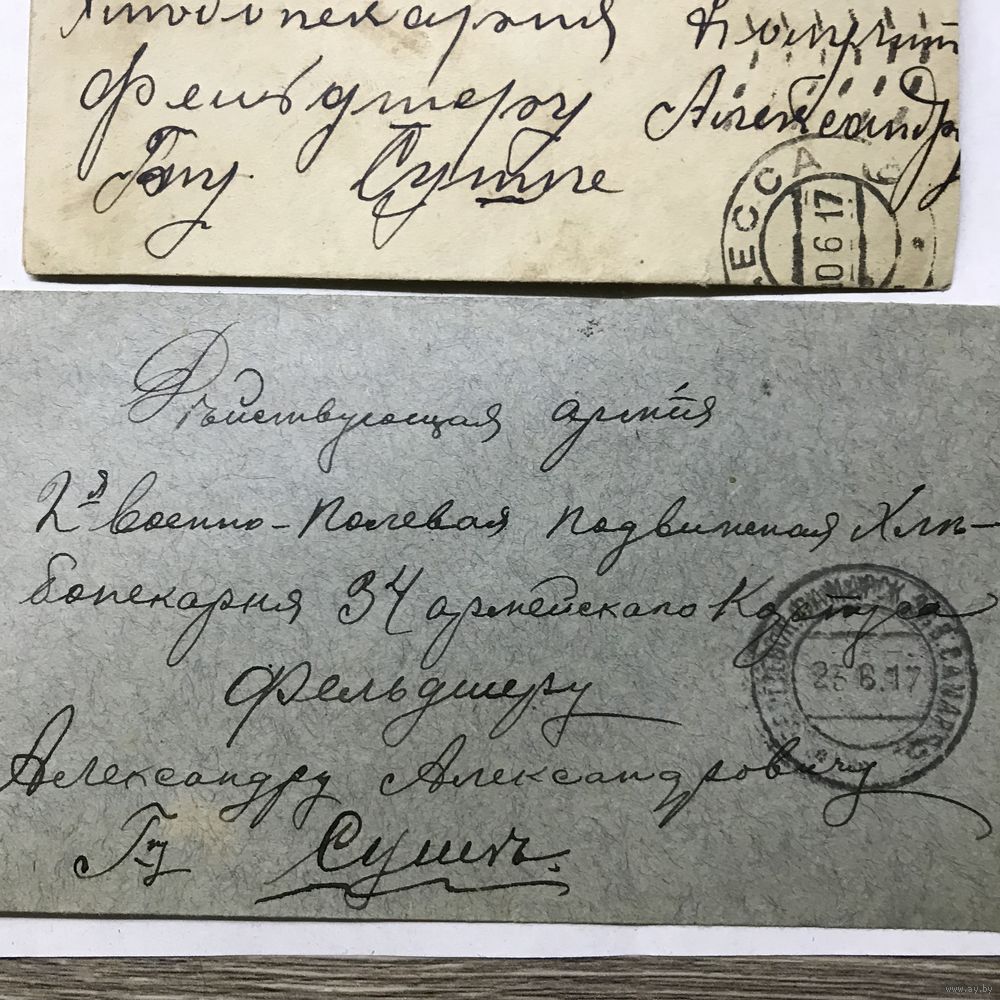 Хлѣбопекарня
Фельдшеру Александр
Г-ну Сушке
ОДЕССА
10 6 17
Дѣйствующая армія
2я Военно-Полевая Подвижная Хлѣ-
бопекарня 34 армейскаго Корпуса
Фельдшеру
25.6.17
Александру Александровичу
Г-ну Сушкѣ.
www.ay.by